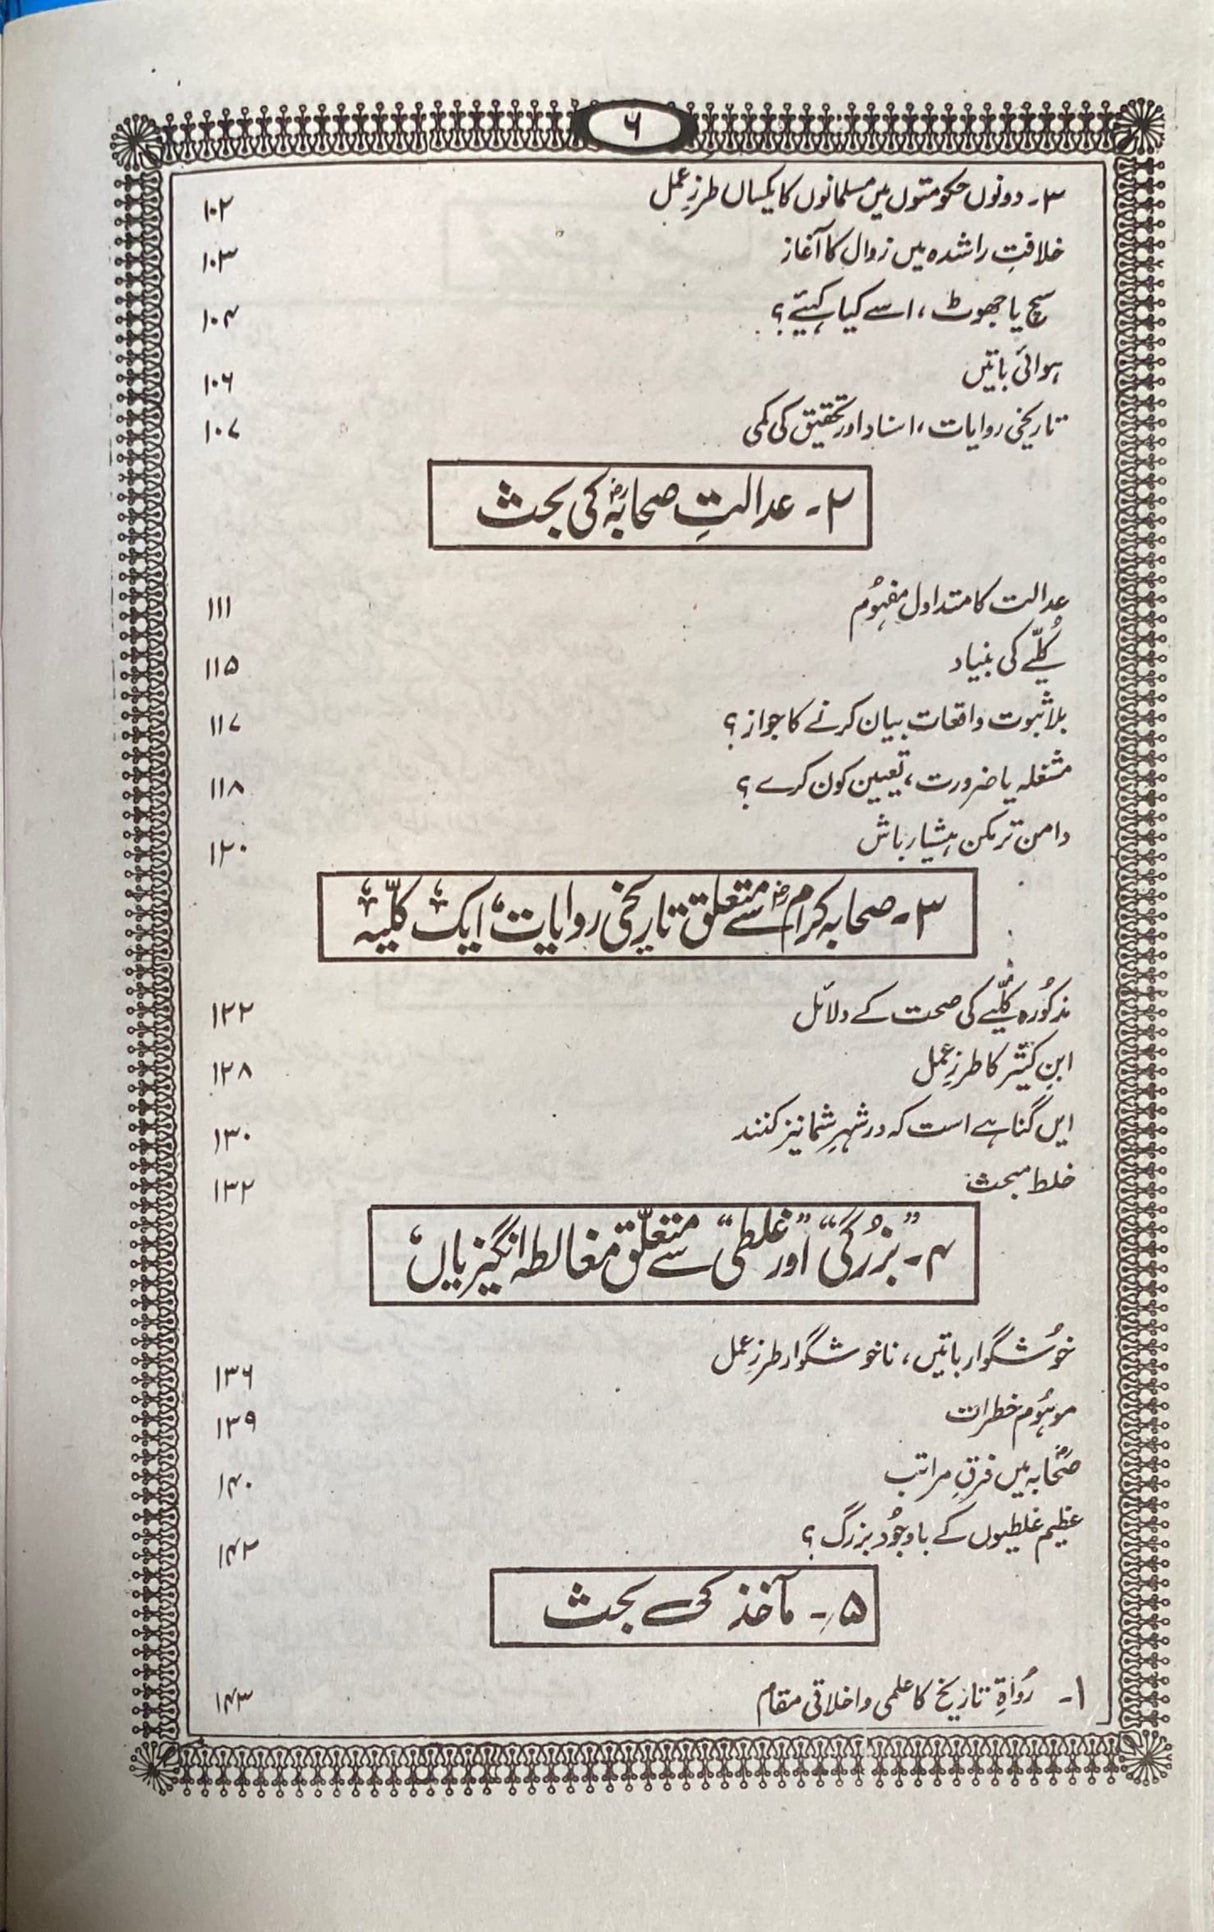 ۶
۳۔ دونوں حکومتوں میں مسلمانوں کا یکساں طرزِ عمل ۱۰۲
خلافتِ راشدہ میں زوال کا آغاز ۱۰۳
سچ یا جھوٹ، اسے کیا کہیئے؟ ۱۰۴
ہوائی باتیں ۱۰۶
تاریخی روایات، اسناد اور تحقیق کی کمی ۱۰۷
۲۔ عدالتِ صحابہؓ کی بحث
عدالت کا متداول مفہُوم ۱۱۱
کُلّیے کی بنیاد ۱۱۵
بلا ثبوت واقعات بیان کرنے کا جواز؟ ۱۱۷
مشغلہ یا ضرورت، تعیین کون کرے؟ ۱۱۸
دامن تر مکن ہشیار باش ۱۲۰
۳۔ صحابہ کرامؓ سے متعلق تاریخی روایات، ایک کلّیہ
مذکورہ کُلّیے کی صحت کے دلائل ۱۲۲
ابنِ کثیرؒ کا طرزِ عمل ۱۲۸
ایں گناہے است کہ در شہرِ شما نیز کنند ۱۳۰
خلط مبحث ۱۳۲
۴۔ ”بزرگی“ اور ”غلطی“ سے متعلّق مغالطہ انگیزیاں
خوُشگوار باتیں، ناخوشگوار طرزِ عمل ۱۳۶
موہُوم خطرات ۱۳۹
صحابہؓ میں فرقِ مراتب ۱۴۰
عظیم غلطیوں کے باوجوُد بزرگ؟ ۱۴۲
۵۔ مآخذ کی بحث
۱۔ رُواۃِ تاریخ کا علمی و اخلاقی مقام ۱۴۳